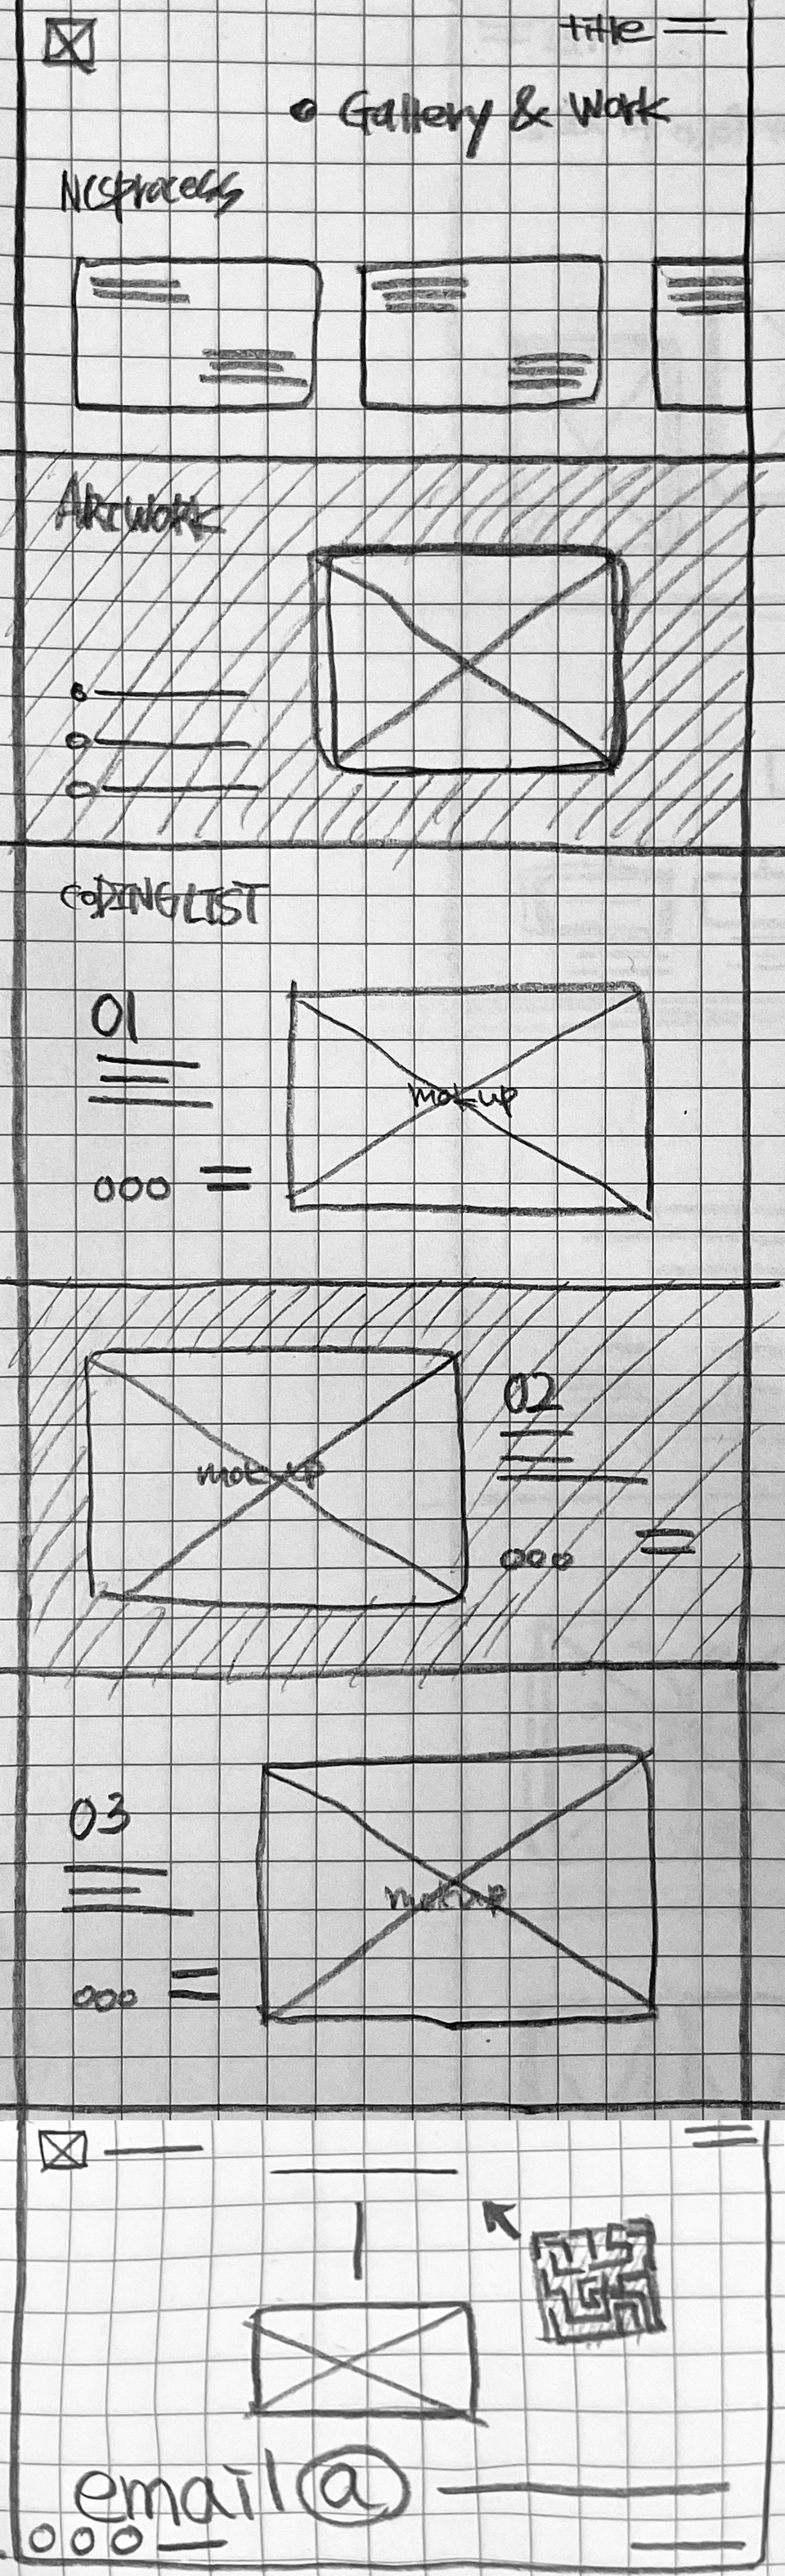 title
• Gallery & Work
Ncsprocess
ARTWORK
CODINGLIST
01
mokup
02
mokup
03
mokup
email@